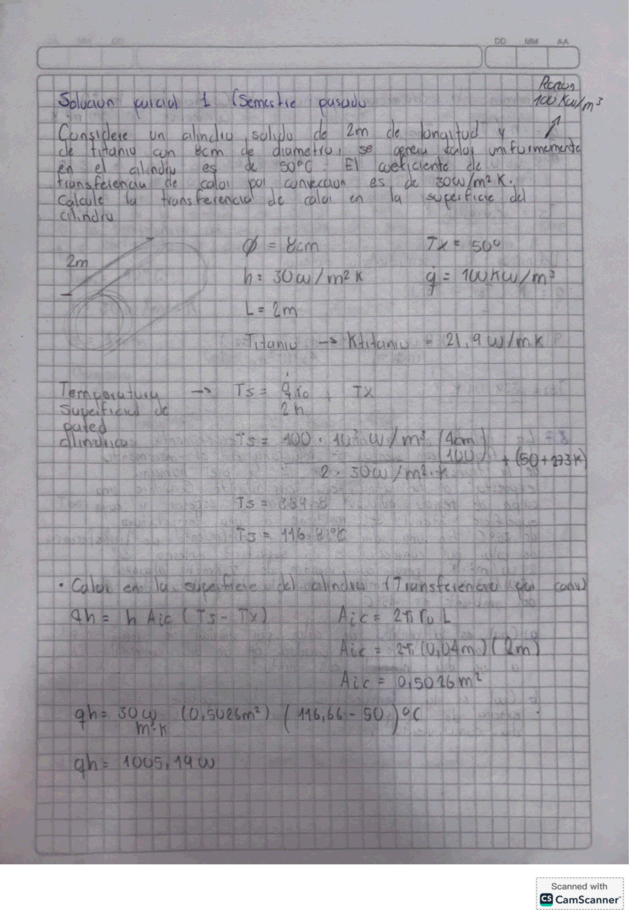 DD MM AA
Solucion parcial 1 (Semestre pasado
100 Kw/m³
Considere un cilindro solido de 2m de longitud y
de titanio con 8cm de diametro, se genera calor uniformemente
en el cilindro es de 50°C El coeficiente de
transferencia de calor por conveccion es de 30w/m²K.
Calcule la transferencia de calor en la superficie del
cilindro
2m
Ø = 8cm T∞ = 50°
h = 30w/m²K q = 100Kw/m³
L = 2m
Titanio -> Ktitanio = 21,9 w/mK
Temperatura -> Ts = q ro T∞
superficial de 2h
pared
cilindrica Ts = 100 · 10³ w/m³ (4cm/100) + (50+273K)
2 · 30w/m²·K
Ts =
Ts = 116,8°C
• Calor en la superficie del cilindro (Transferencia por conv)
qh = h Aic (Ts - T∞) Aic = 2π ro L
Aic = 2π (0,04m) (2m)
Aic = 0,5026m²
qh = 30w/m²K (0,5026m²) (116,66 - 50)°C
qh = 1005,19w
Scanned with
CS CamScanner